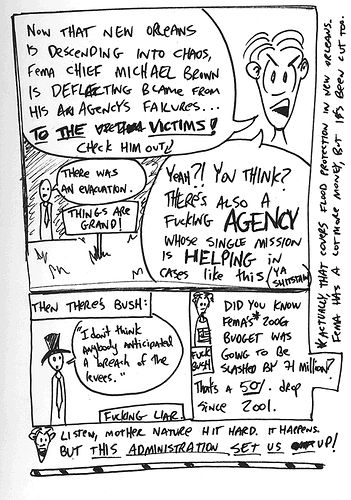 NOW THAT NEW ORLEANS
IS DESCENDING INTO CHAOS,
FEMA CHIEF MICHAEL BROWN
IS DEFLECTING BLAME FROM
HIS AGENCY'S FAILURES...
TO THE VICTIMS!
CHECK HIM OUT!
THERE WAS
AN EVACUATION.
THINGS ARE
GRAND!
YEAH?! YOU THINK?
THERE'S ALSO A
FUCKING AGENCY
WHOSE SINGLE MISSION
IS HELPING IN
CASES LIKE THIS
YA
SHITSTAIN
*ACTUALLY, THAT COVERS FLOOD PROTECTION IN NEW ORLEANS.
FEMA HAS A LOT MORE MONEY, BUT IT'S BEEN CUT TOO.
THEN THERE'S BUSH:
"I don't think
anybody anticipated
a breach of the
levees."
FUCKING LIAR.
FUCK
BUSH
DID YOU KNOW
FEMA'S* 2006
BUDGET WAS
GOING TO BE
SLASHED BY 71 MILLION?
THAT'S A 50% DROP
SINCE 2001.
LISTEN, MOTHER NATURE HIT HARD. IT HAPPENS.
BUT THIS ADMINISTRATION SET US UP!